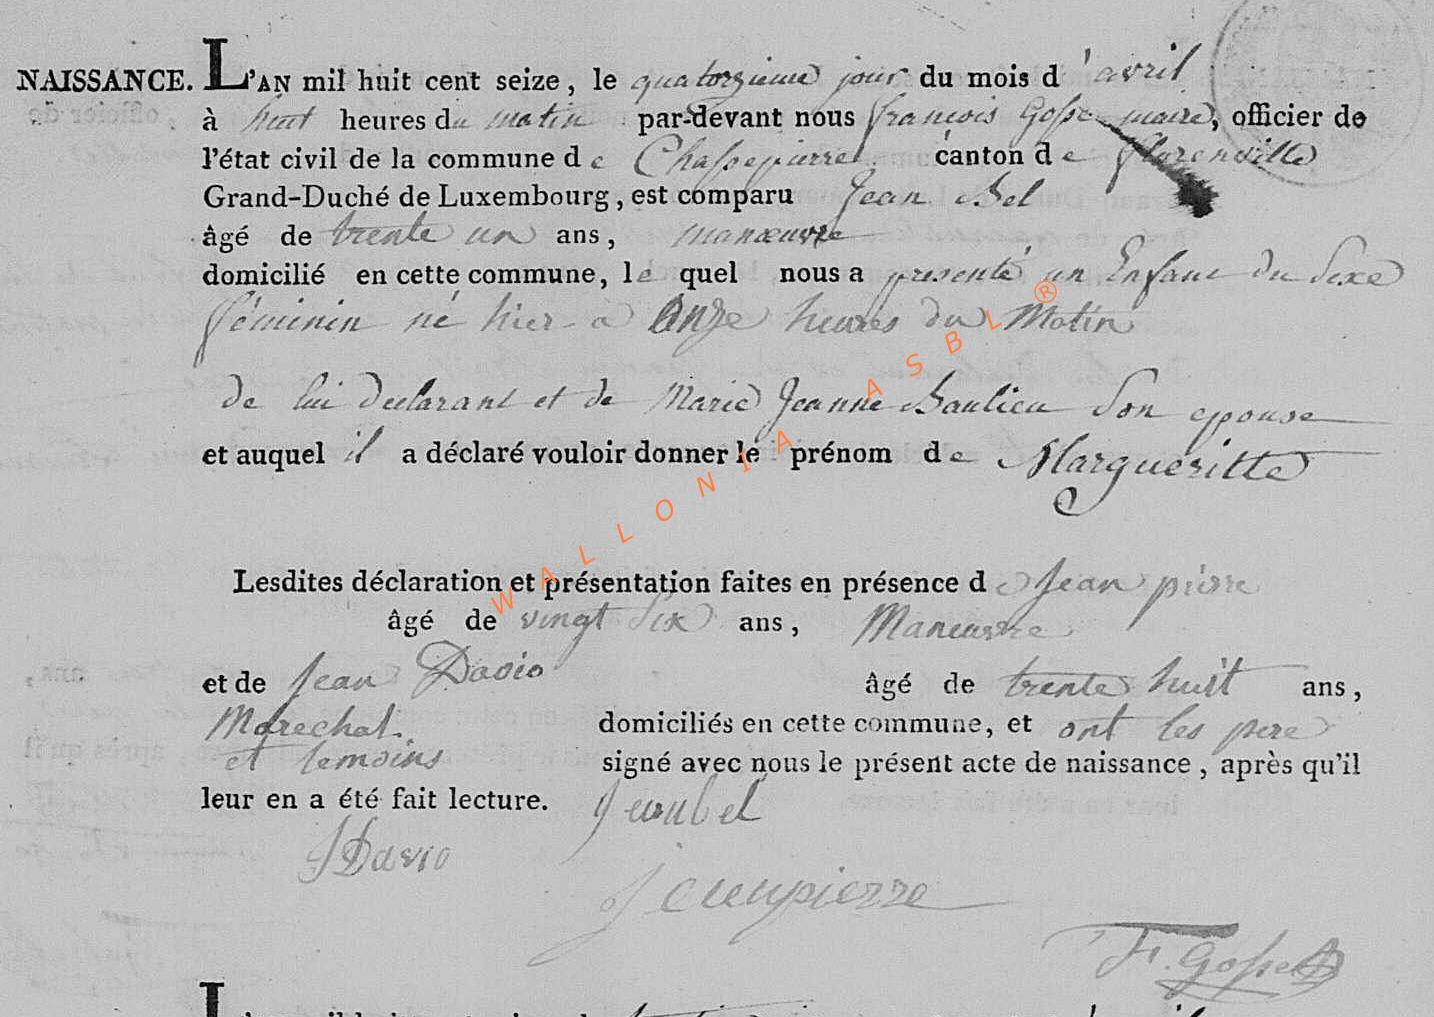 NAISSANCE. L'AN mil huit cent seize, le quatorzieme jour du mois d'avril
à huit heures du matin par-devant nous françois Gosse maire, officier de
l'état civil de la commune de Chassepierre canton de florenville
Grand-Duché de Luxembourg, est comparu Jean Bel
âgé de trente un ans, manœuvre
domicilié en cette commune, le quel nous a presenté un Enfant du Sexe
féminin né hier à Onze heures du Matin
de lui declarant et de Marie Jeanne Baulieu Son epouse
et auquel il a déclaré vouloir donner le prénom de Margueritte
Lesdites déclaration et présentation faites en présence de Jean pierre
âgé de vingt Six ans, Maneuvre
et de Jean Davio âgé de trente huit ans,
Marechal. domiciliés en cette commune, et ont les pere
et temoins signé avec nous le présent acte de naissance, après qu'il
leur en a été fait lecture. Jeanbel
JDavio
Jeanpierre
F. Gosse
WALLONIA ASBL ®